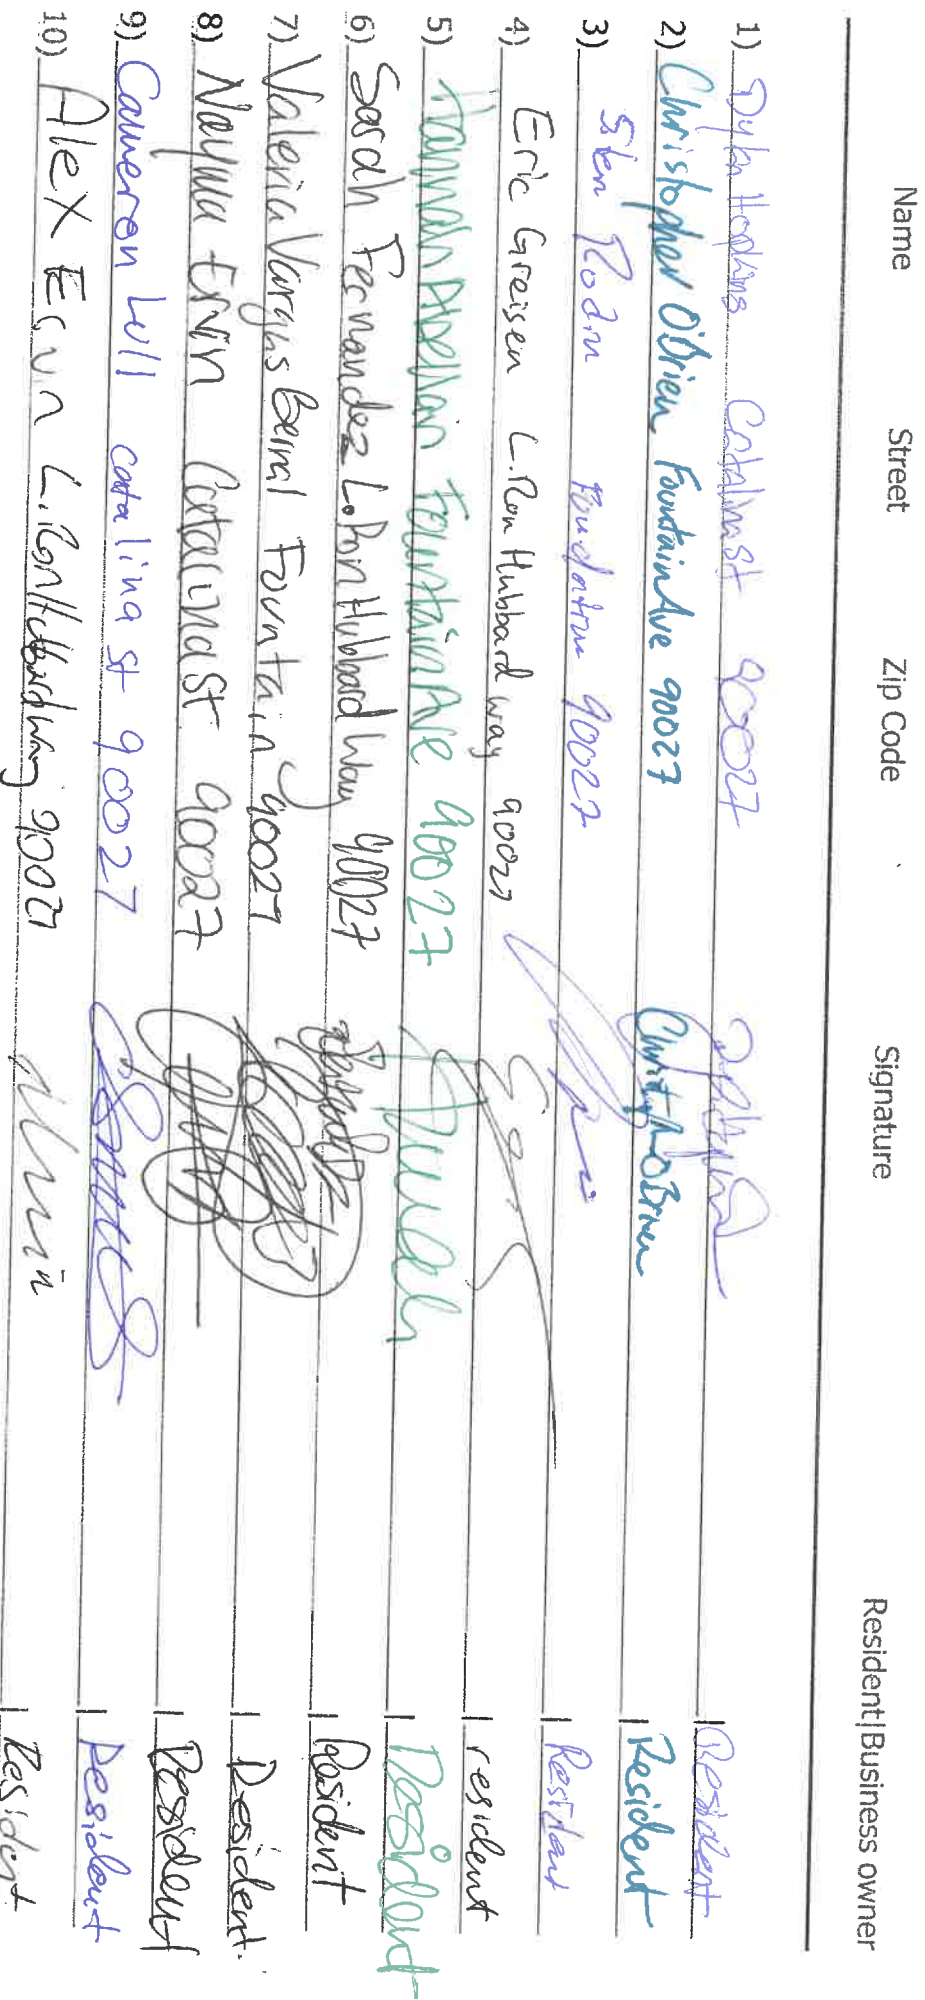 Name Street Zip Code Signature Resident|Business owner
1) Dylan Hopkins Catalina st 90027 Resident
2) Christopher O'Brien Fountain Ave 90027 Christopher O'Brien Resident
3) 90027 Resident
4) Eric Greisen L. Ron Hubbard way 90027 resident
5) Hannah Fountain Ave 90027 Resident
6) Sarah Fernandez L. Ron Hubbard Way 90027 Resident
7) Valeria Vargas Bernal Fountain 90027 Resident.
8) Nayma Ervin Catalina St 90027 Resident
9) Cameron Lull catalina st 90027 Resident
10) Alex Ervin L. Ron Hubbard way 90027 Resident